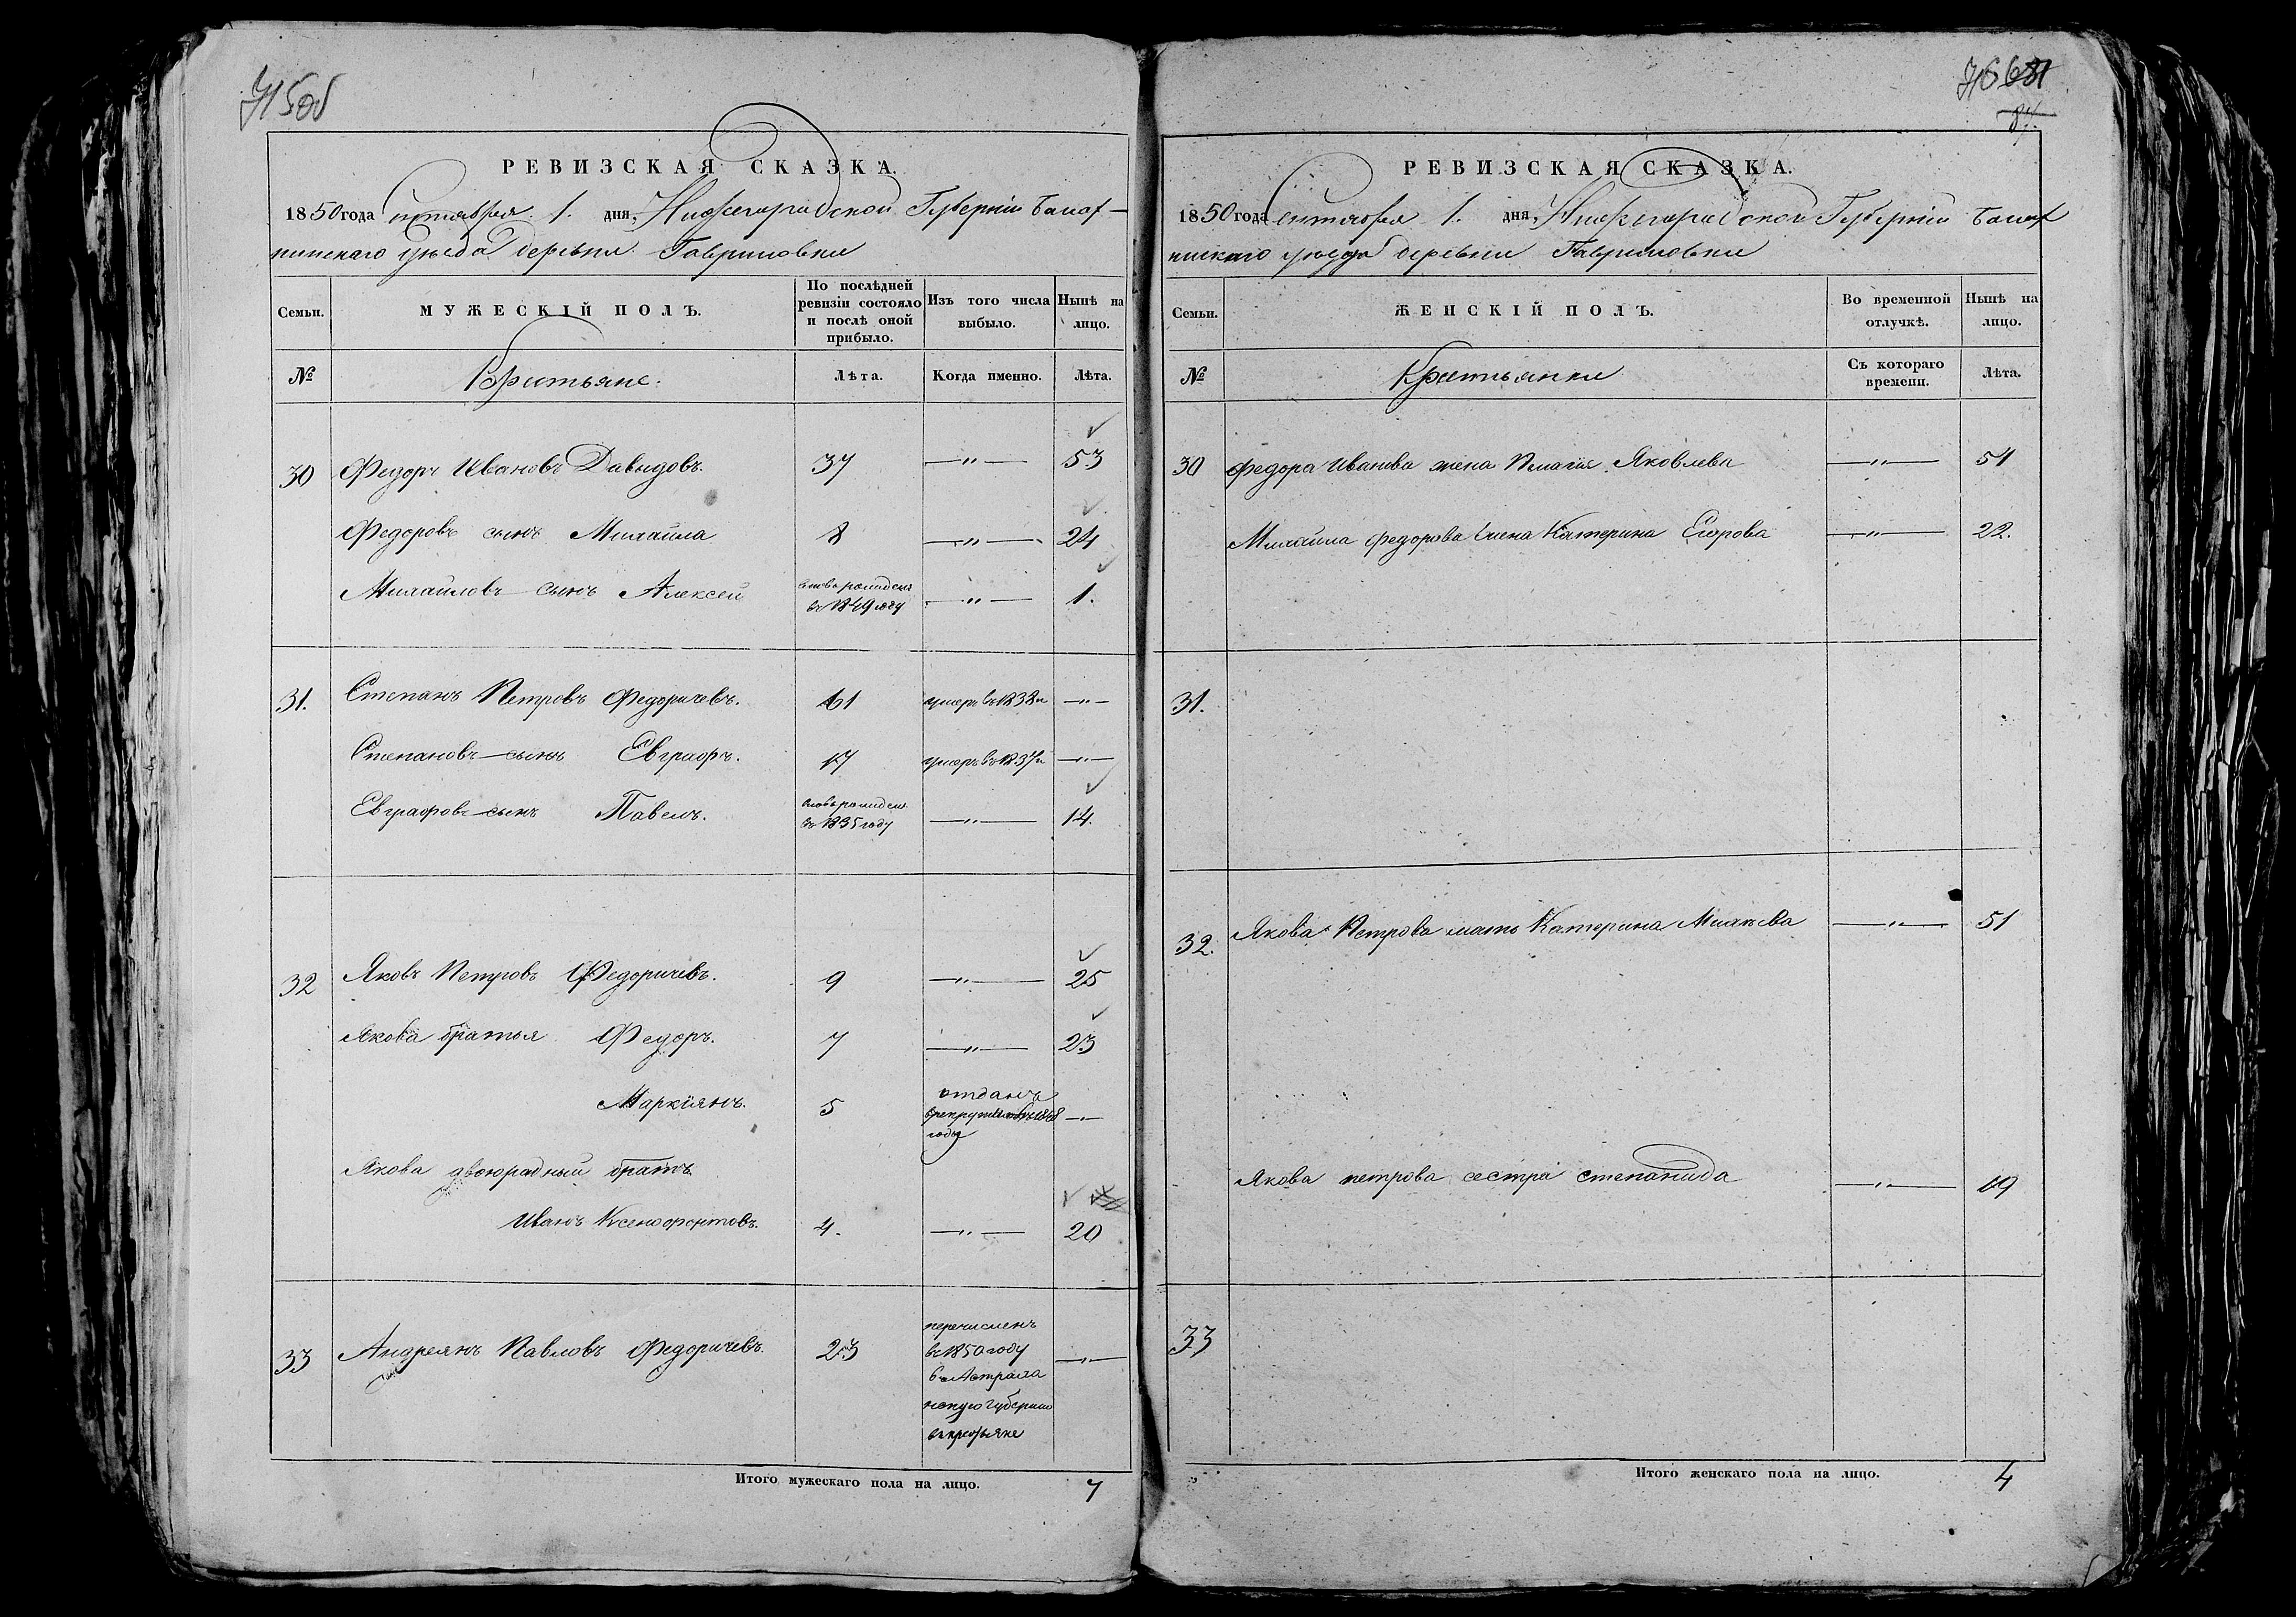 715об
РЕВИЗСКАЯ СКАЗКА.
1850 года сентября 1. дня, Нижегородской Губерніи Балах-
нинскаго уезда деревни Гавриловки
Семьи.
МУЖЕСКІЙ ПОЛЪ.
По послѣдней ревизіи состояло и послѣ оной прибыло.
Изъ того числа выбыло.
Нынѣ на лицо.
№
Крестьяне.
Лѣта.
Когда именно.
Лѣта.
30 Федоръ Ивановъ Давыдовъ. 37 —"— 53
Федоровъ сынъ Михайла 8 —"— 24
Михайловъ сынъ Алексей вновь рожденъ —"— 1.
в 1849 году
31. Степанъ Петровъ Федоричевъ. 61 умеръ въ 1832 —"—
Степановъ сынъ Евграфъ. 17 умеръ въ 1837 —"—
Евграфовъ сынъ Павелъ. вновь рожденъ —"— 14.
въ 1835 году
32 Яковъ Петровъ Федоричевъ. 9 —"— 25
Якова братья Федоръ. 7 —"— 23
Маркіянъ. 5 отданъ —"—
в рекруты въ 1848
году
Якова двоюрадный братъ
Иванъ Ксенофонтовъ. 4. —"— 20
33 Андреянъ Павловъ Федоричевъ. 23 перечисленъ —"—
въ 1850 году
въ Астраха
нскую губернию
въ крестьяне
Итого мужескаго пола на лицо. 7
716
87.
РЕВИЗСКАЯ СКАЗКА.
1850 года сентября 1. дня, Нижегородской Губерніи Балах
нинскаго уезда деревни Гавриловки
Семьи.
ЖЕНСКІЙ ПОЛЪ.
Во временной отлучкѣ.
Нынѣ на лицо.
№
Крестьянки
Съ котораго времени.
Лѣта.
30 Федора Иванова жена Пелагия Яковлева —"— 51
Михайла Федорова жена Катерина Егорова —"— 22.
31.
32. Якова Петрова мать Катерина Михеева —"— 51
Якова петрова сестра степанида —"— 19
33
Итого женскаго пола на лицо. 4